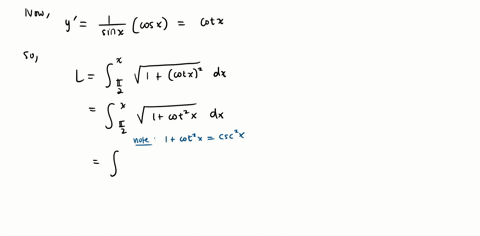 Now,
y' = 1/sinx (cosx) = cotx
So,
L = ∫_{π/2}^{x} √(1 + (cotx)²) dx
= ∫_{π/2}^{x} √(1 + cot²x) dx
note: 1 + cot²x = csc²x
= ∫